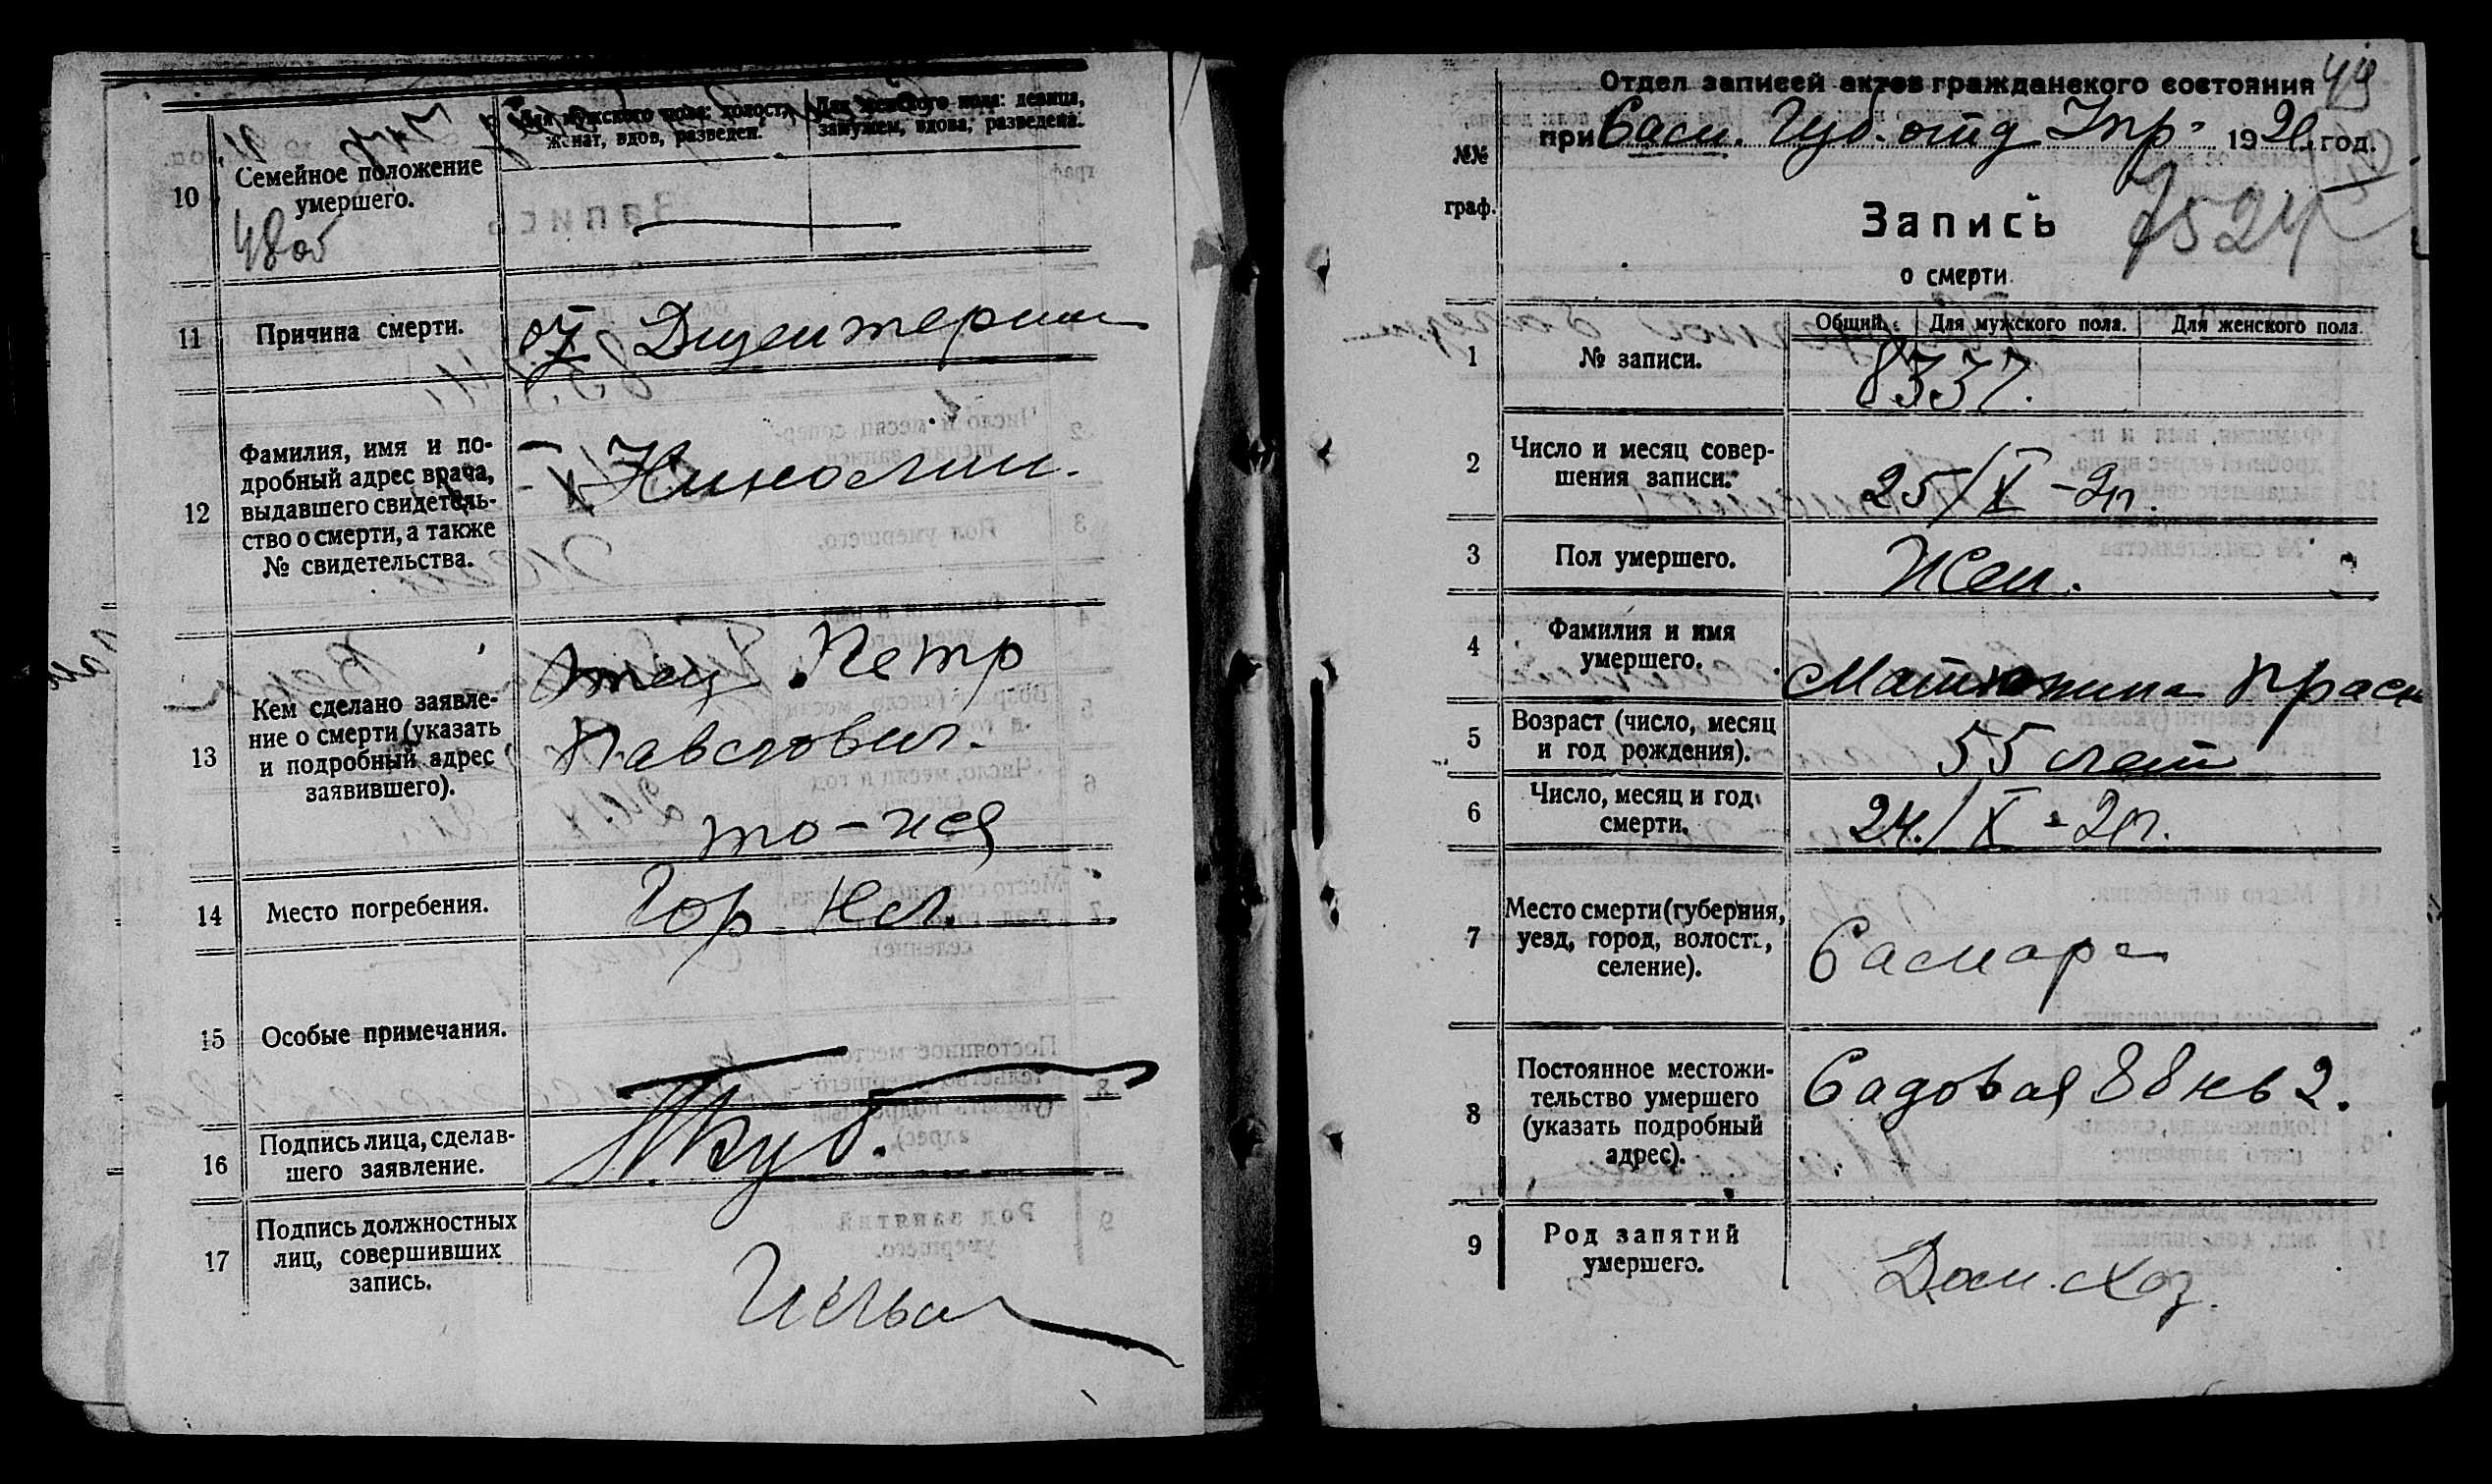 10
Семейное положение
умершего.
Для мужского пола: холост,
женат, вдов, разведен.
Для женского пола: девица,
замужем, вдова, разведена.
48 об
11
Причина смерти.
от Дизентерии
12
Фамилия, имя и по-
дробный адрес врача,
выдавшего свидетель-
ство о смерти, а также
№ свидетельства.
13
Кем сделано заявле-
ние о смерти (указать
и подробный адрес
заявившего).
Петр
Павлович.
14
Место погребения.
Гор
15
Особые примечания.
16
Подпись лица, сделав-
шего заявление.
17
Подпись должностных
лиц, совершивших
запись.
49
Отдел записей актов гражданского состояния
при Сам. Губ. отд Упр 1921 год.
№№
граф.
Запись
о смерти
7524
Общий.
Для мужского пола.
Для женского пола.
1
№ записи.
8337.
2
Число и месяц совер-
шения записи.
25/X - 21г.
3
Пол умершего.
Жен.
4
Фамилия и имя
умершего.
Матюнина Праск
5
Возраст (число, месяц
и год рождения).
55 лет
6
Число, месяц и год
смерти.
24/X - 21г.
7
Место смерти (губерния,
уезд, город, волость,
селение).
Самара
8
Постоянное местожи-
тельство умершего
(указать подробный
адрес).
Садовая 88 кв 2.
9
Род занятий
умершего.
Дом. хоз.